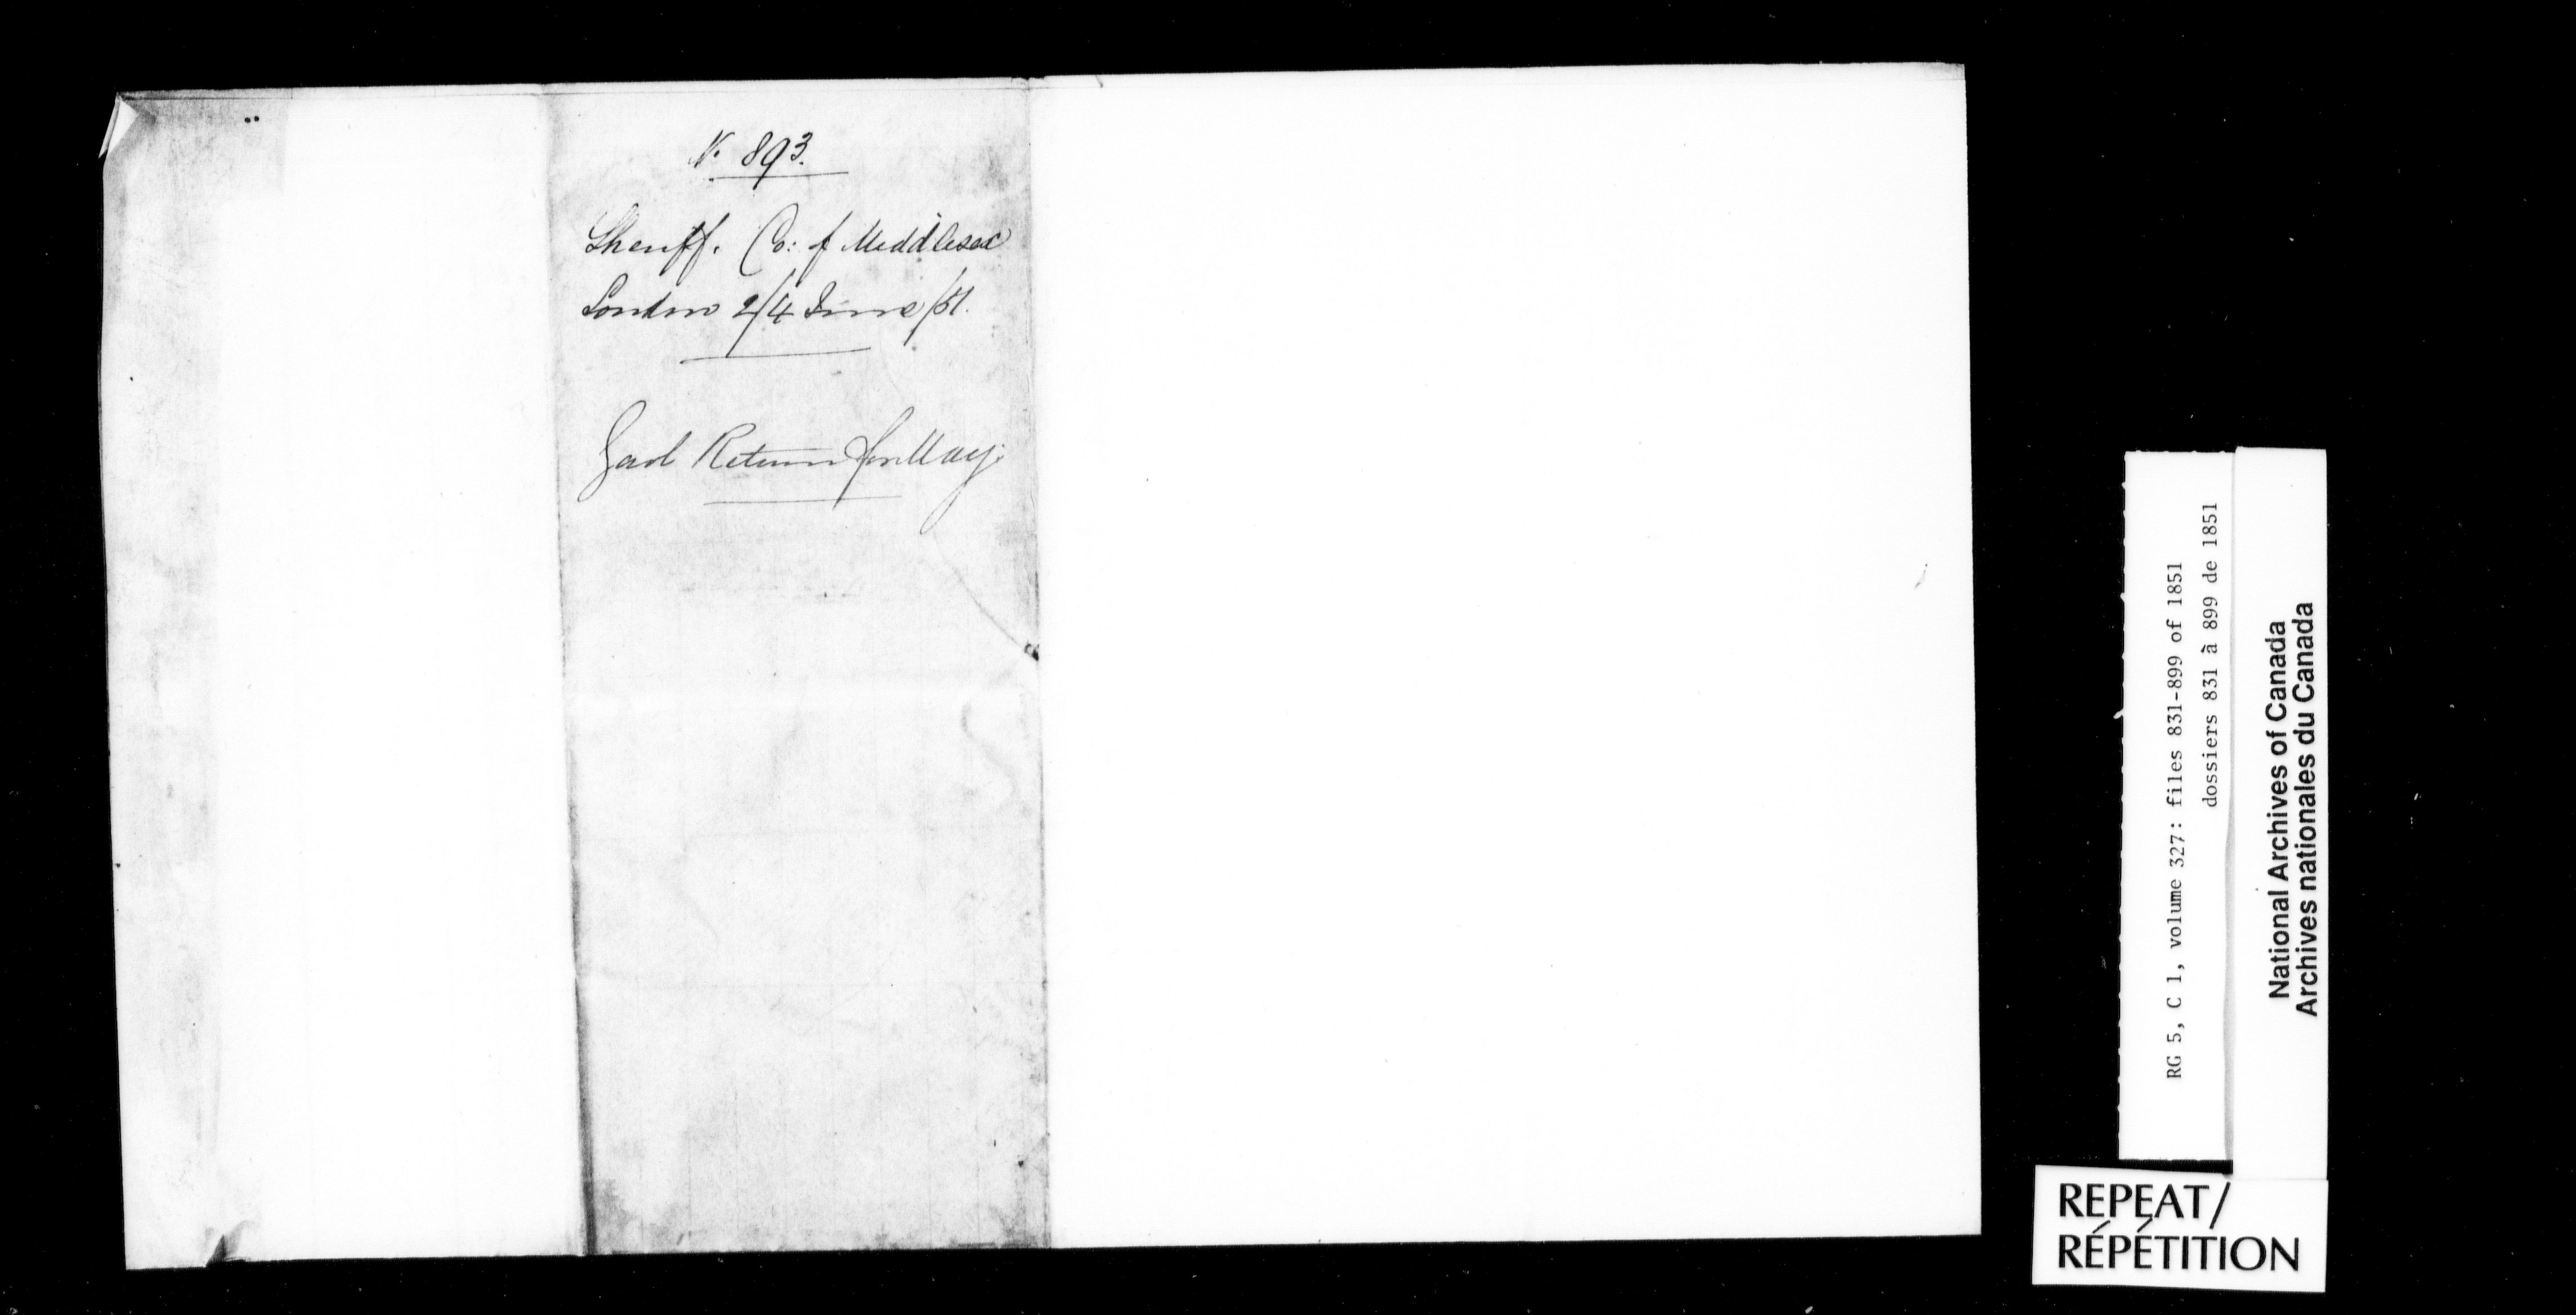 N. 893.
Sheriff. Co: of Middlesex
London 2/4 June/51.
Gaol Return for May.
RG 5, C 1, volume 327: files 831-899 of 1851
dossiers 831 à 899 de 1851
National Archives of Canada
Archives nationales du Canada
REPEAT/
RÉPÉTITION